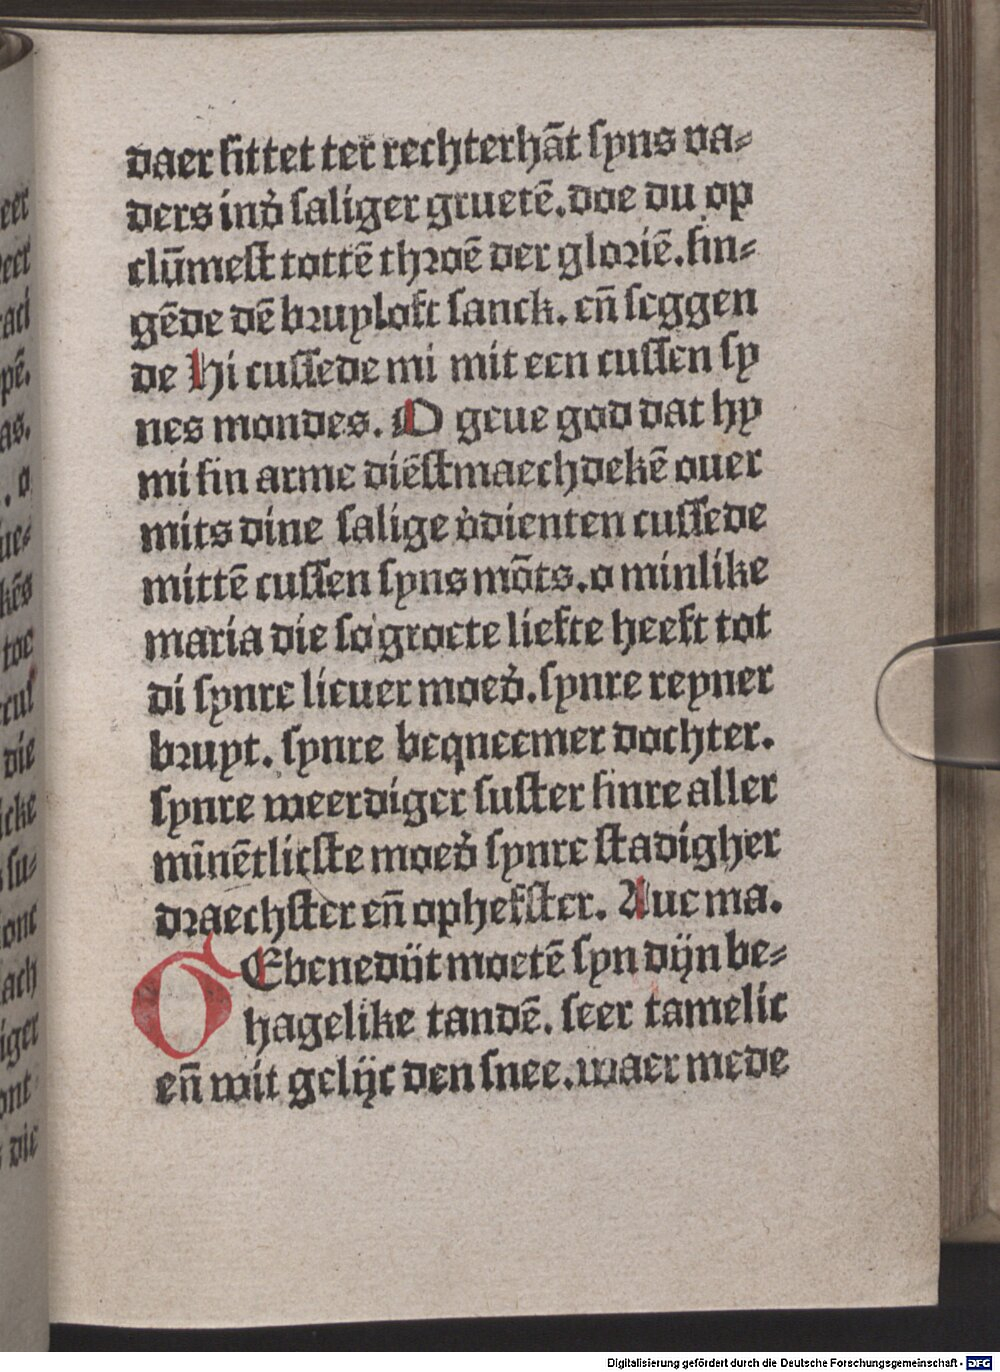 daer sittet ter rechterhãt syns va⸗
ders inđ saliger gruetẽ. doe du op
clũmest tottẽ throẽ der gloriẽ. sin⸗
gẽde dẽ bruyloft sanck. eñ seggen
de Hi cussede mi mit een cussen sy
nes mondes. O geue god dat hy
mi sin arme diẽstmaechdekẽ ouer
mits dine salige v̓dienten cussede
mittẽ cussen syns mõts. o minlike
maria die so groete liefte heeft tot
di synre lieuer moed̓. synre reyner
bruyt. synre beqneemer dochter.
synre weerdiger suster sinre aller
mĩnẽtlicste moed̓ synre stadigher
draechster eñ ophefster. Aue ma.
GEbenedijt moetẽ syn dijn be⸗
hagelike tandẽ. seer tamelic
eñ wit gelijc den snee. waer mede
Digitalisierung gefördert durch die Deutsche Forschungsgemeinschaft - DFG